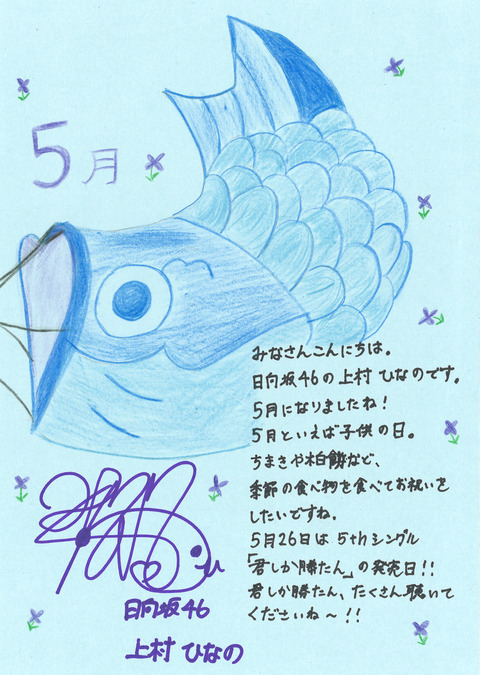 5月
みなさんこんにちは。
日向坂46の上村 ひなのです。
5月になりましたね!
5月といえば子供の日。
ちまきや柏餅など、
季節の食べ物を食べてお祝いを
したいですね。
5月26日は 5thシングル
「君しか勝たん」の発売日!!
君しか勝たん、たくさん聴いて
くださいね〜!!
日向坂46
上村 ひなの